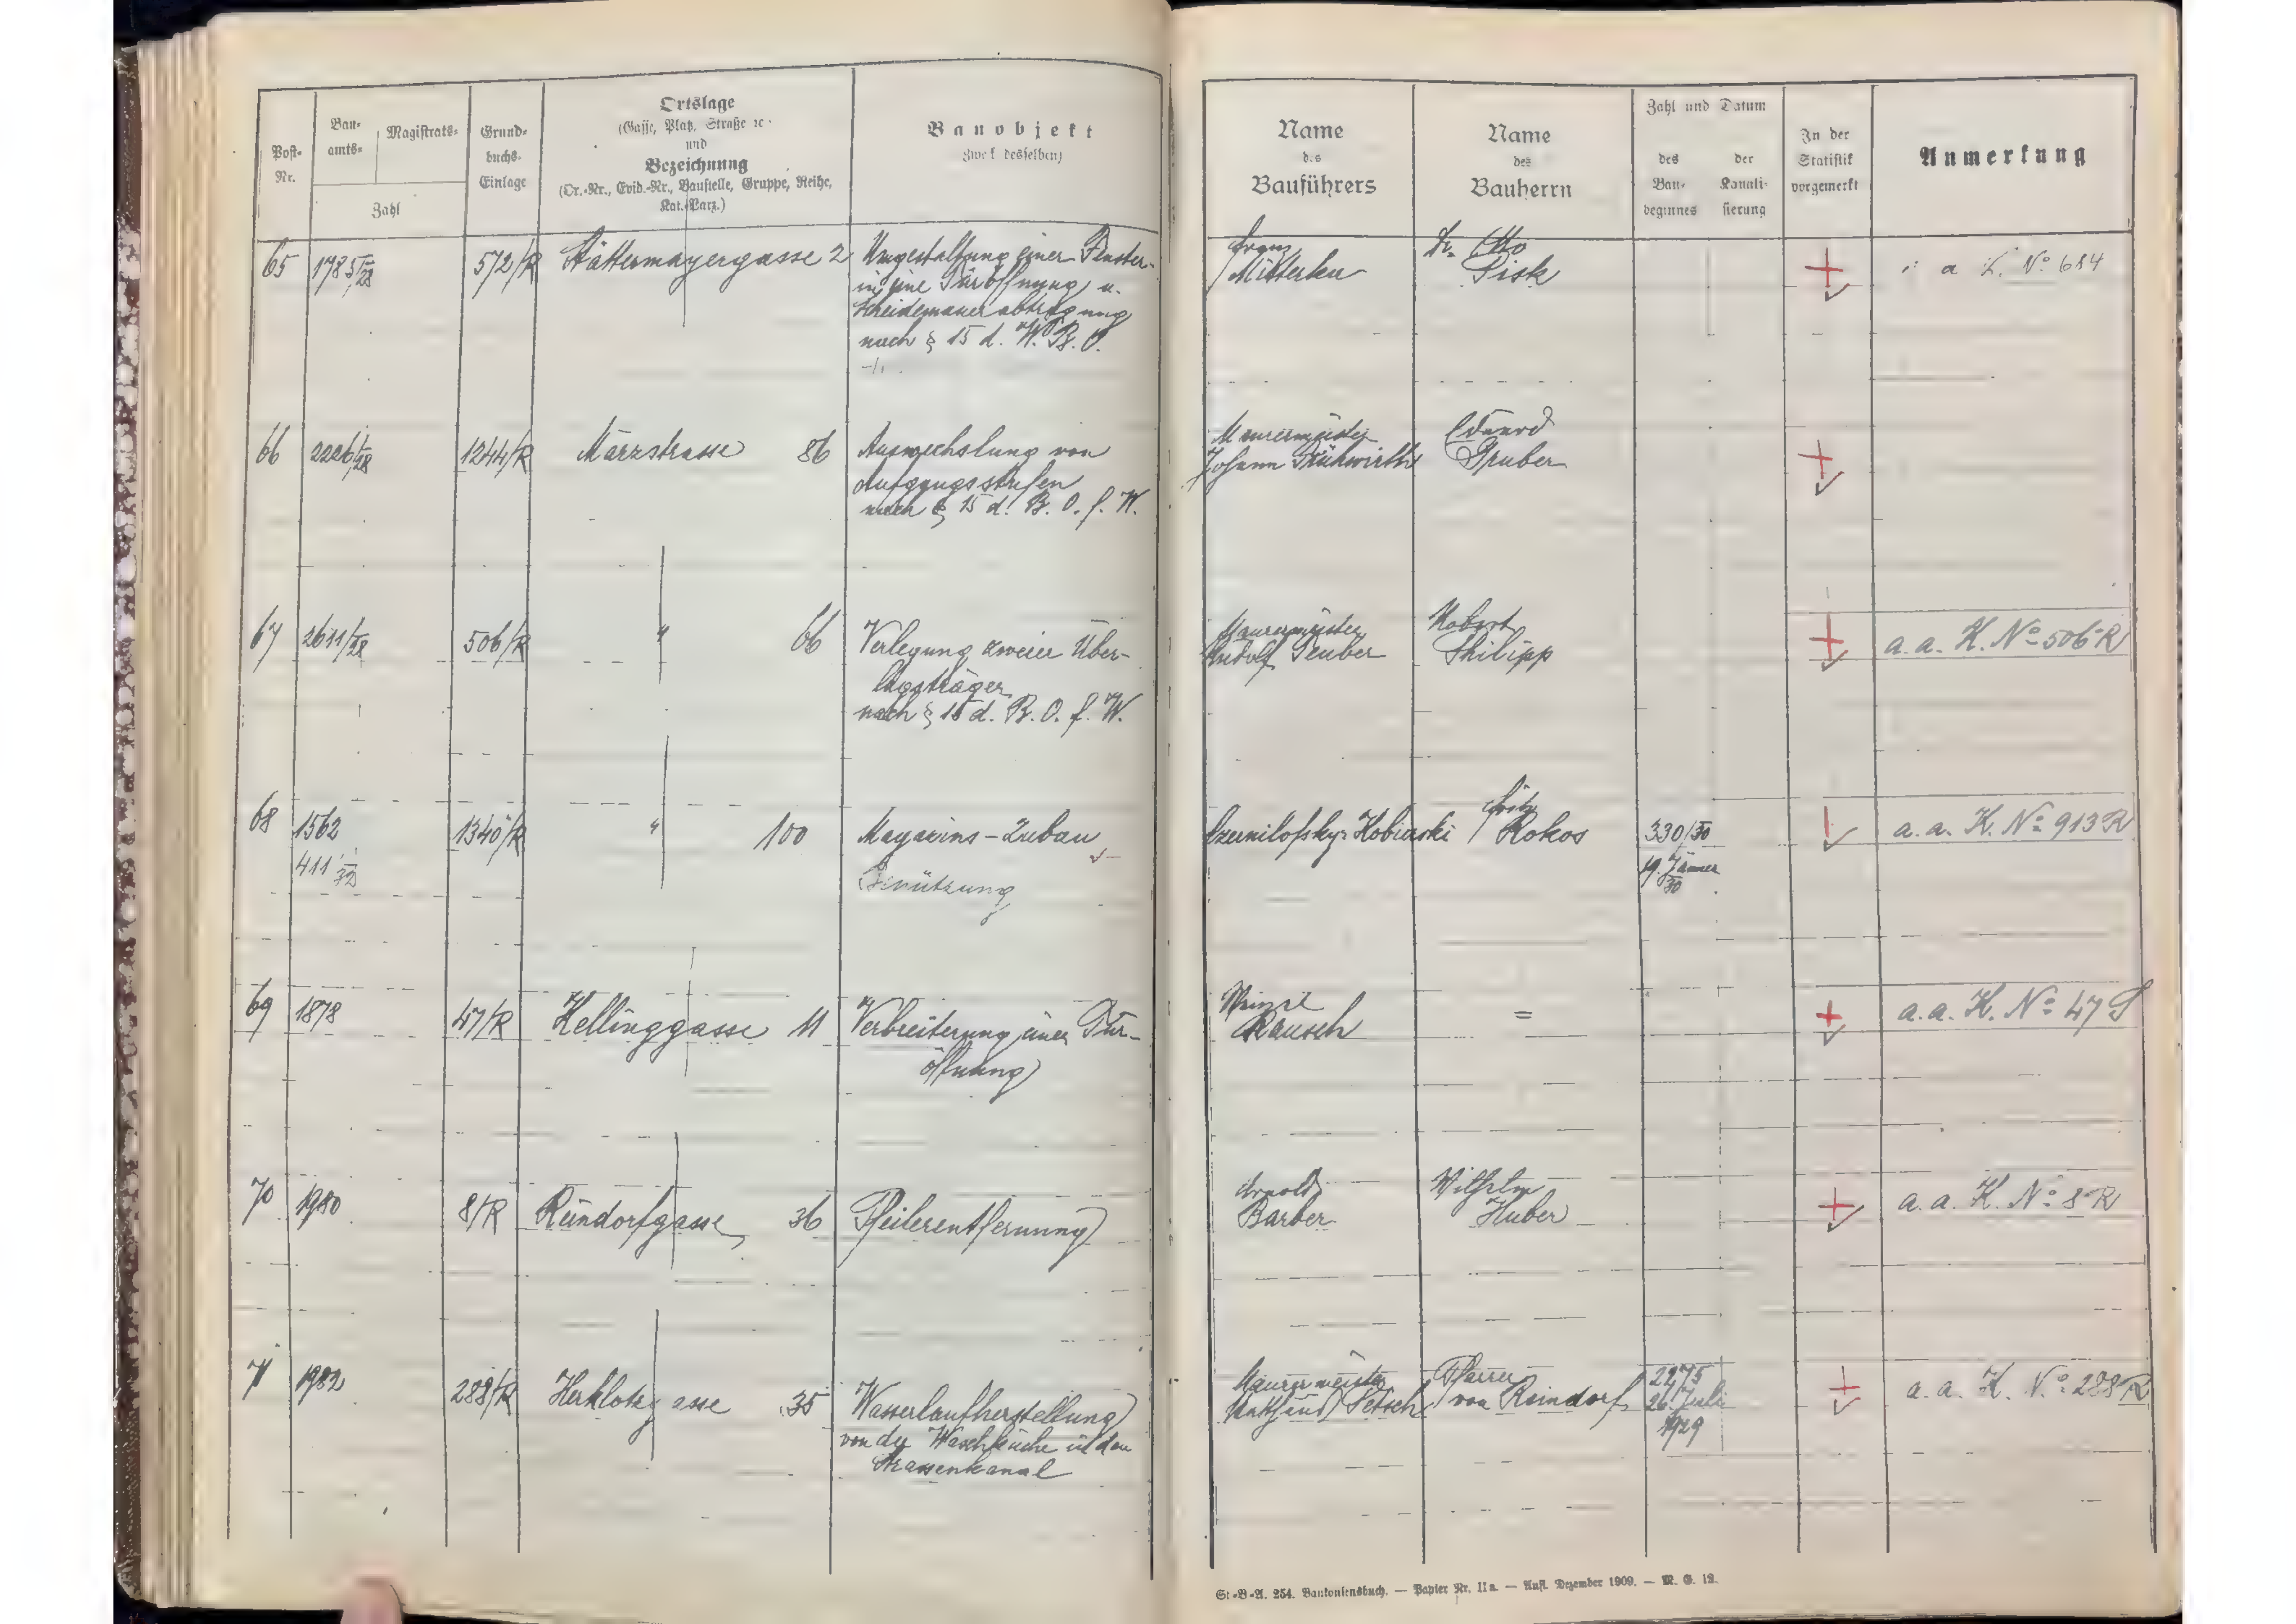 Post-
Nr.
Bau-
amts-
Magistrats-
Zahl
Grund-
buchs-
Einlage
Ortslage
(Gasse, Platz, Straße ꝛc.
und
Bezeichnung
(Or.-Nr., Evid.-Nr., Baustelle, Gruppe, Reihe,
Kat.-Parz.)
Bauobjekt
(Zweck desselben)
Name
des
Bauführers
Name
des
Bauherrn
Zahl und Datum
des
Bau-
beginnes
der
Kanali-
sierung
In der
Statistik
vorgemerkt
Anmerkung
65 1785/28 572/R Stättermayergasse 2 Umgestaltung einer Fenster-
in eine Türöffnung u.
Scheidemauerabtragung
nach § 15 d. W. B. O.
Franz
Mitterhu
Dr. Otto
Pisk
a K. No 684
66 2226/28 1244/R Märzstrasse 86 Auswechslung von
Aufgangsstufen
nach § 15 d. B. O. f. W.
Maurermeister
Johann Frühwirth
Eduard
Gruber
67 2611/28 506/R " 66 Verlegung zweier Über-
lagsträger
nach § 15 d. B. O. f. W.
Maurermeister
Rudolf Teuber
Robert
Philipp
a.a. K. No 506 R
68 1562 1340/R " 100 Magazins-Zubau
411/32
Benützung
Czernilofsky-Kobierski
Fritz
Rokos
330/30
19. Jänner
30
a.a. K. No 913 R
69 1878 47/R Kellinggasse 11 Verbreiterung einer Tür-
öffnung
Rausch
=
a.a. K. No 47 S
70 1980 8/R Reindorfgasse 36 Pfeilerentfernung
Arnold
Barber
Wilhelm
Huber
a.a. K. No 8 R
71 1982 288/R Herklotzgasse 35 Wasserlaufherstellung
von der Waschküche in den
Strassenkanal
Maurermeister
Petsch
Pfarre
von Reindorf
2275
26. Juli
1929
a.a. K. No 288 R
St.-B.-A. 254. Baukonsensbuch. — Papier Nr. IIa. — Aufl. Dezember 1909. — M. G. 12.